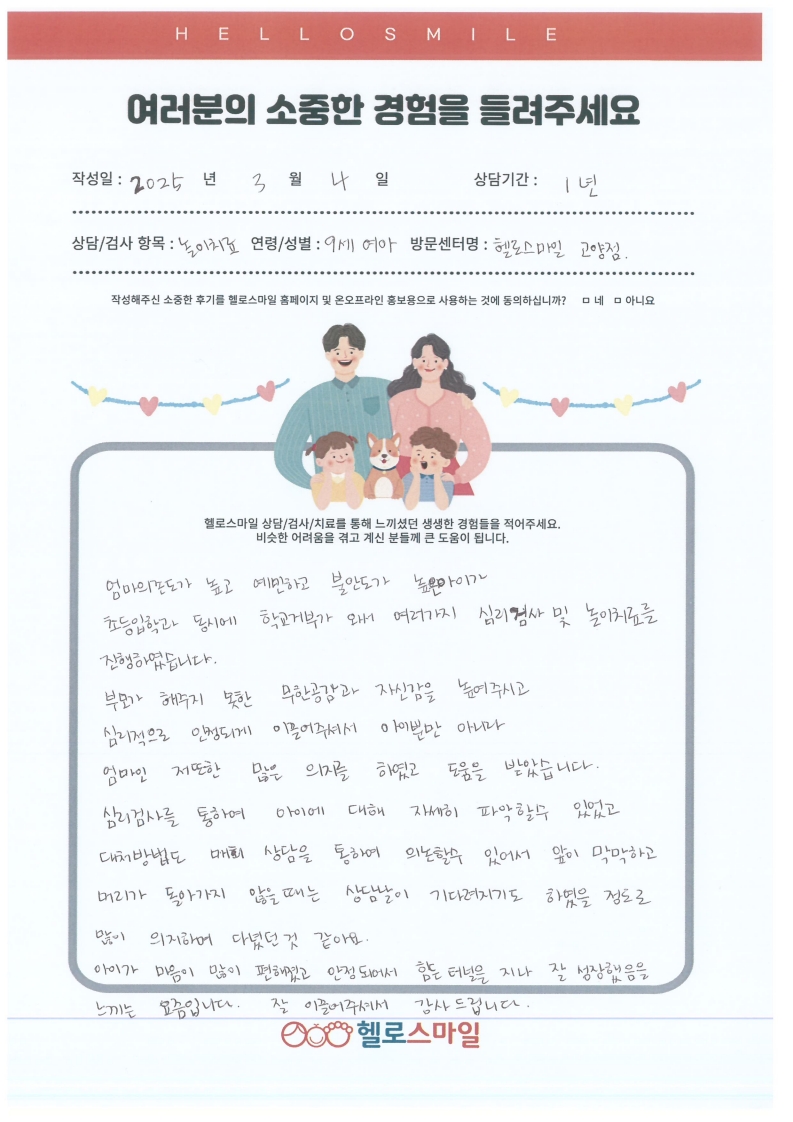 HELLOSMILE
여러분의 소중한 경험을 들려주세요
작성일 : 2025 년 3 월 4 일 상담기간 : 1년
상담/검사 항목 : 놀이치료 연령/성별 : 9세 여아 방문센터명 : 헬로스마일 고양점.
작성해주신 소중한 후기를 헬로스마일 홈페이지 및 온오프라인 홍보용으로 사용하는 것에 동의하십니까? □ 네 □ 아니요
헬로스마일 상담/검사/치료를 통해 느끼셨던 생생한 경험들을 적어주세요.
비슷한 어려움을 겪고 계신 분들께 큰 도움이 됩니다.
엄마의존도가 높고 예민하고 불안도가 높은아이가
초등입학과 동시에 학교거부가 와서 여러가지 심리검사 및 놀이치료를
진행하였습니다.
부모가 해주지 못한 무한공감과 자신감을 높여주시고
심리적으로 안정되게 이끌어주셔서 아이뿐만 아니라
엄마인 저또한 많은 의지를 하였고 도움을 받았습니다.
심리검사를 통하여 아이에 대해 자세히 파악할수 있었고
대처방법도 매회 상담을 통하여 의논할수 있어서 앞이 막막하고
머리가 돌아가지 않을때는 상담날이 기다려지기도 하였을 정도로
많이 의지하며 다녔던것 같아요.
아이가 마음이 많이 편해졌고 안정되어서 힘든 터널을 지나 잘 성장했음을
느끼는 요즘입니다. 잘 이끌어주셔서 감사드립니다.
헬로스마일